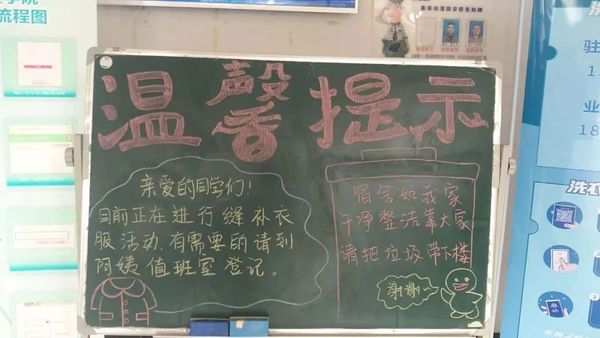 温馨提示
亲爱的同学们!
目前正在进行缝补衣
服活动,有需要的请到
阿姨值班室登记。
宿舍如我家
干净整洁靠大家
请把垃圾带下楼
谢谢~
学院
流程图
洗衣